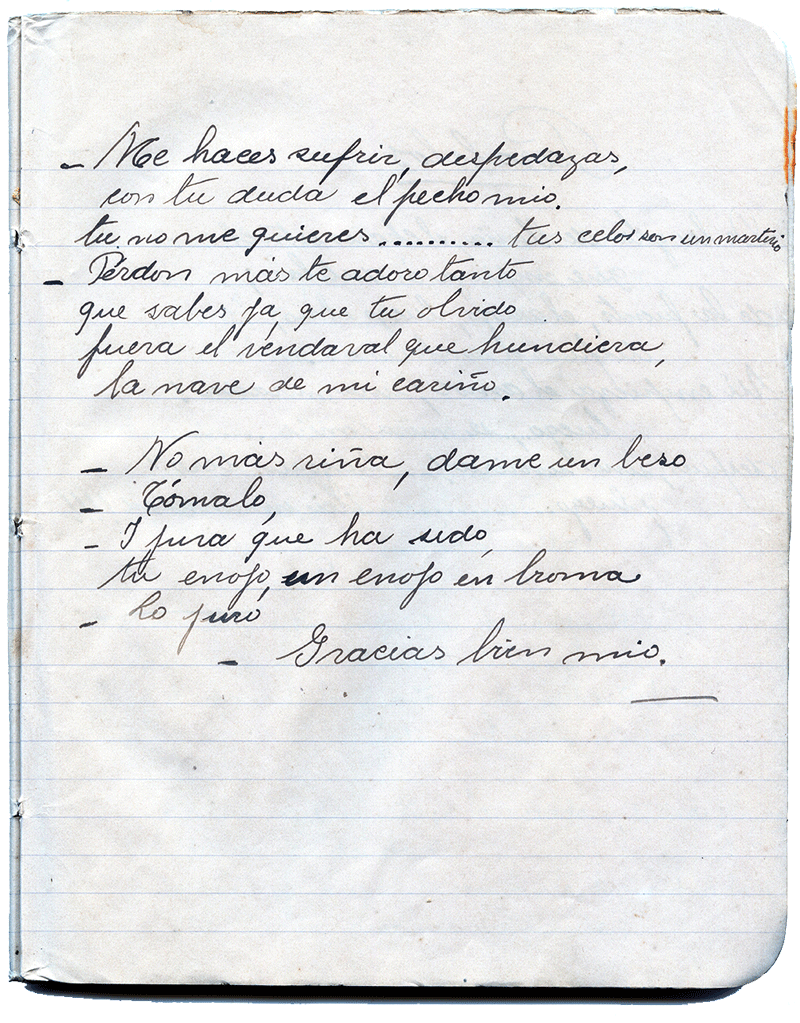 - Me haces sufrir, despedazas,
con tu duda el pecho mio.
tu no me quieres .......... tus celos son un martirio
- Pérdon más te adoro tanto
que sabes ya, que tu olvido
fuera el vendaval que hundiera,
la nave de mi cariño.
- No más riña, dame un beso
- Tómalo,
- I jura que ha sido
tu enojo, un enojo én broma
- Lo juró
- Gracias bien mio.